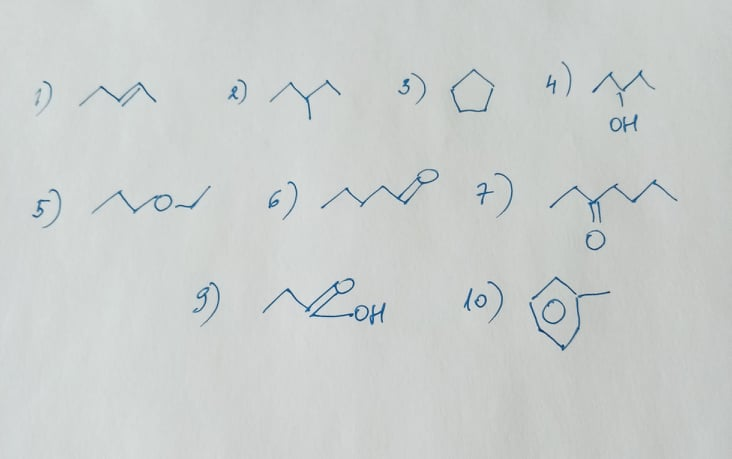 1) 2) 3) 4)
OH
5) O 6) O 7)
O
9) O OH 10)